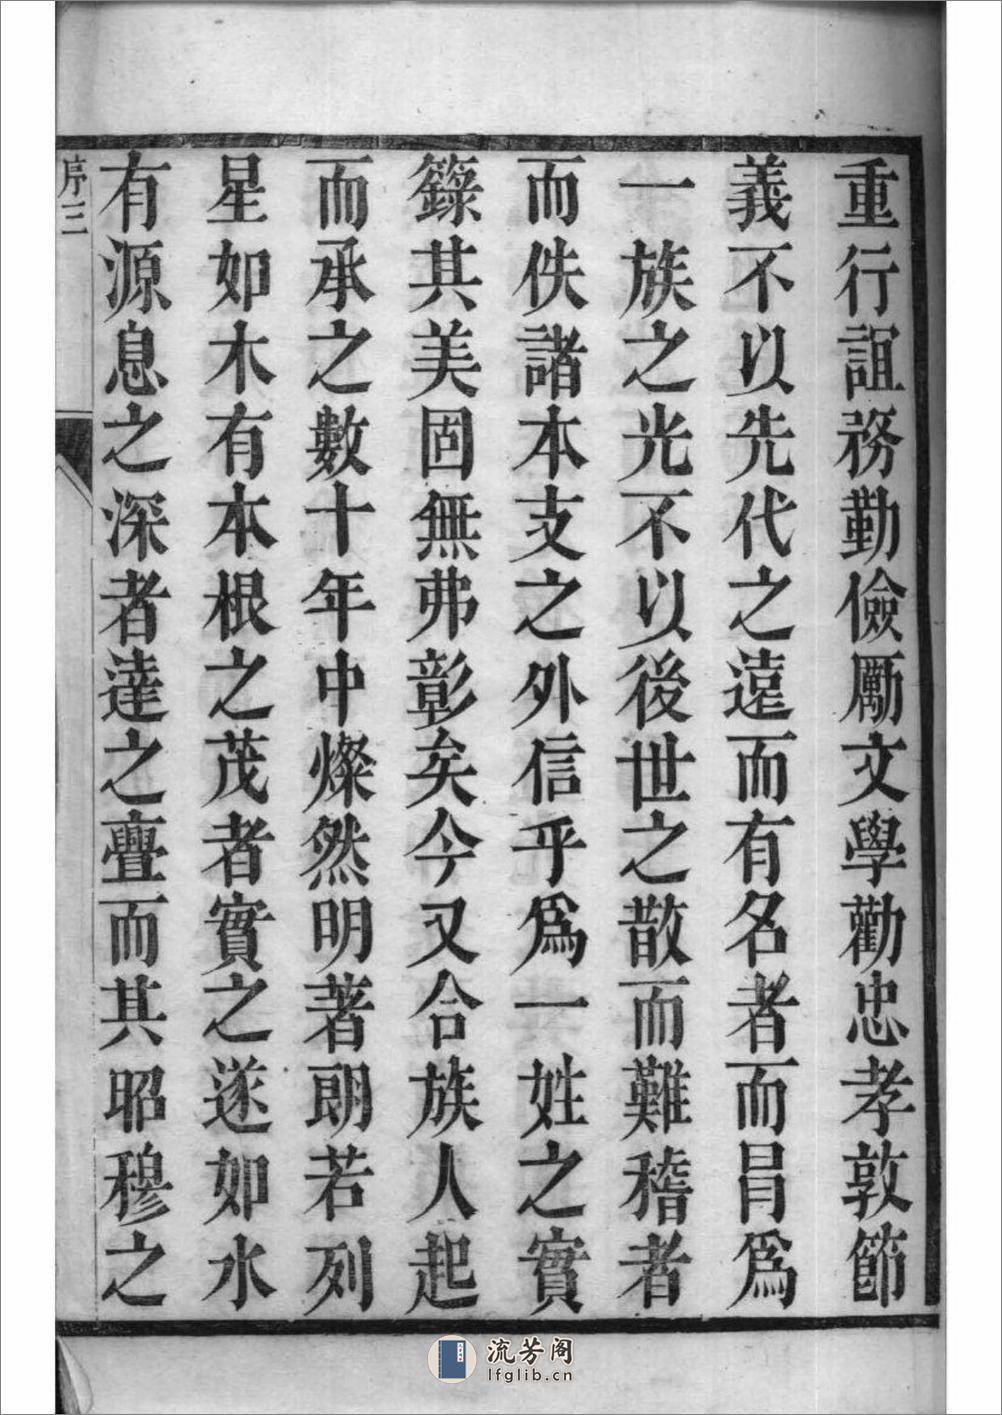 重行誼務勤儉厲文學勸忠孝敦節
義不以先代之遠而有名者而冒爲
一族之光不以後世之散而難稽者
而佚諸本支之外信乎爲一姓之實
錄其美固無弗彰矣今又合族人起
而承之數十年中燦然明著朗若列
星如木有本根之茂者實之遂如水
有源息之深者達之亹而其昭穆之
序三
流芳阁
lfglib.cn